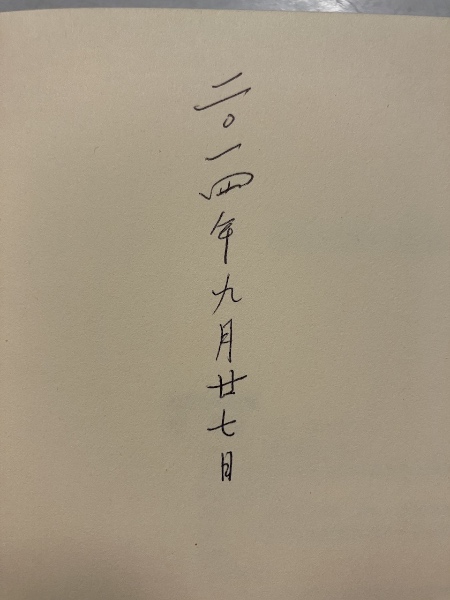 二〇一四年九月廿七日